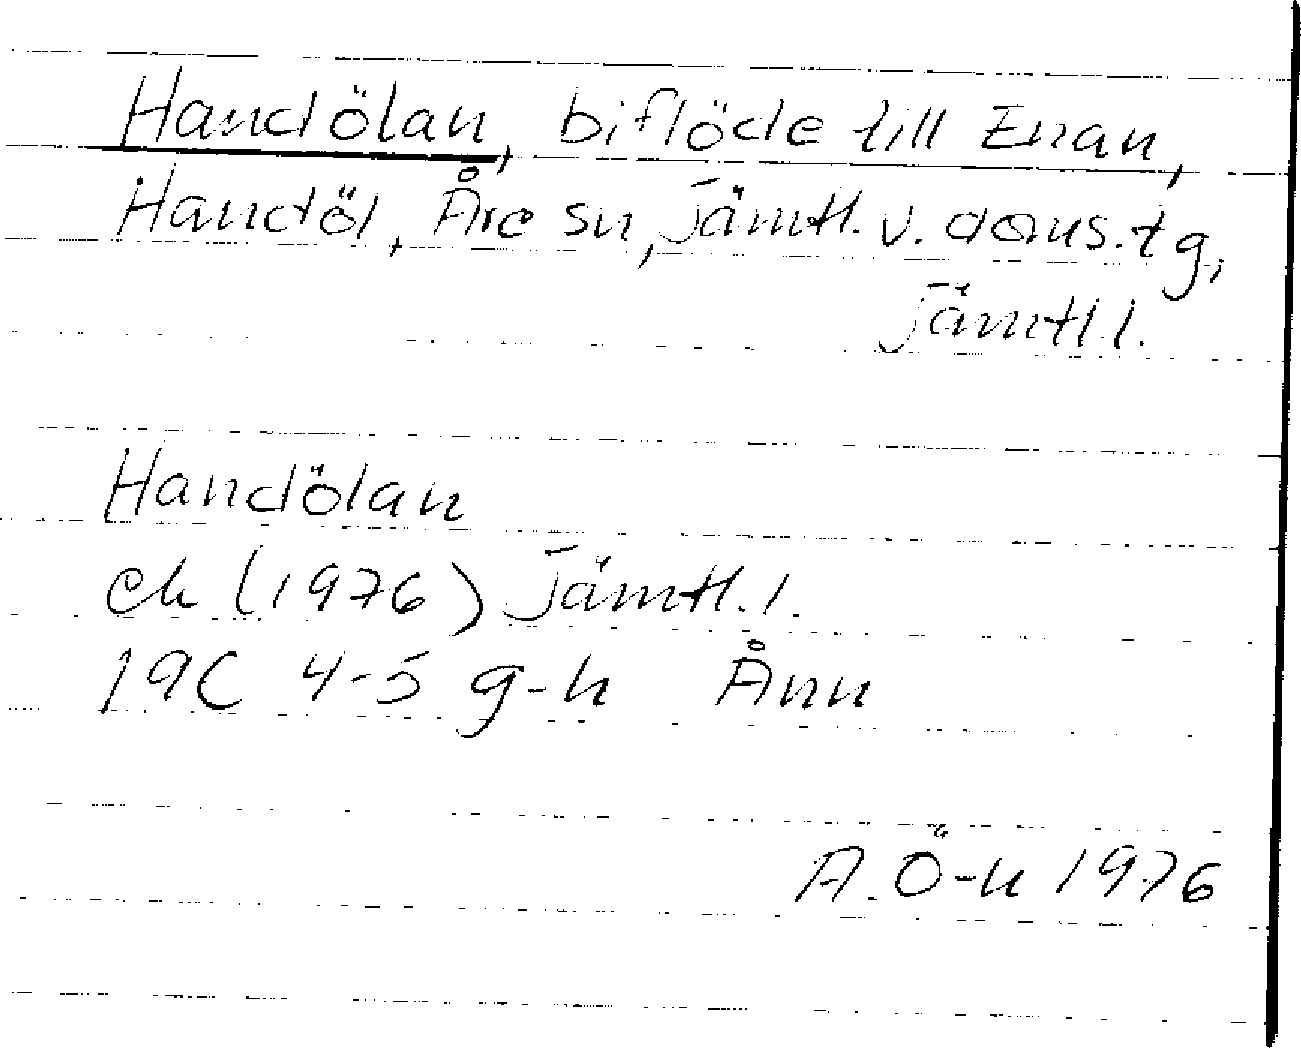 Handölan, biflöde till Enan,
Handöl, Åre sn, Jämtl. v. doms.tg,
Jämtl l.
Handölan
ek (1976) Jämtl. l.
19C 4-5 g-h Ånn
A. Ö-n 1976